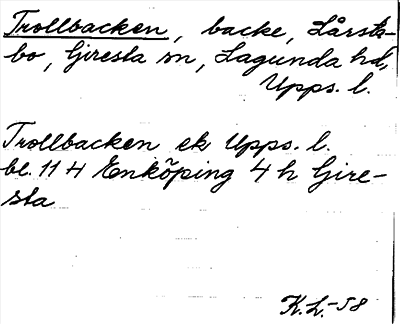 Trollbacken, backe, Lårsts-
bo, Giresta sn, Lagunda hd,
Upps. l.
Trollbacken ek Upps. l.
bl. 114 Enköping 4 h Gire-
sta
K.L. -58